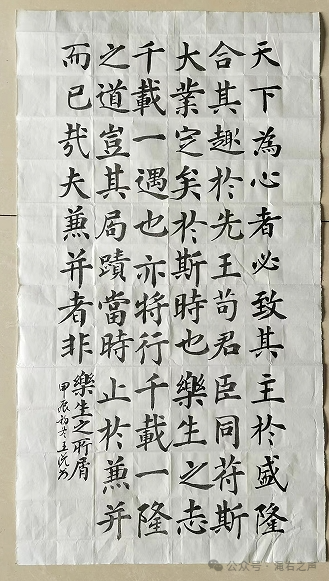 天下為心者必致其主於盛隆
合其趣於先王苟君臣同苻斯
大業定矣於斯時也樂生之志
千載一遇也亦將行千載一隆
之道豈其局蹟當時止於兼并
而已哉夫兼并者非樂生之所屑
甲辰初冬王
公众号·石之声